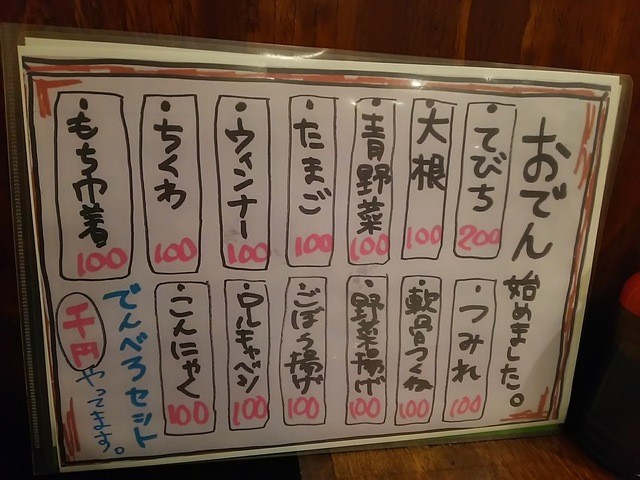 おでん始めました。
・てびち 200
・大根 100
・青野菜 100
・たまご 100
・ウィンナー 100
・ちくわ 100
・もち巾着 100
・つみれ 100
・軟骨つくね 100
・野菜揚げ 100
・ごぼう揚げ 100
・ロールキャベツ 100
・こんにゃく 100
でんべろセット
千円やってます。